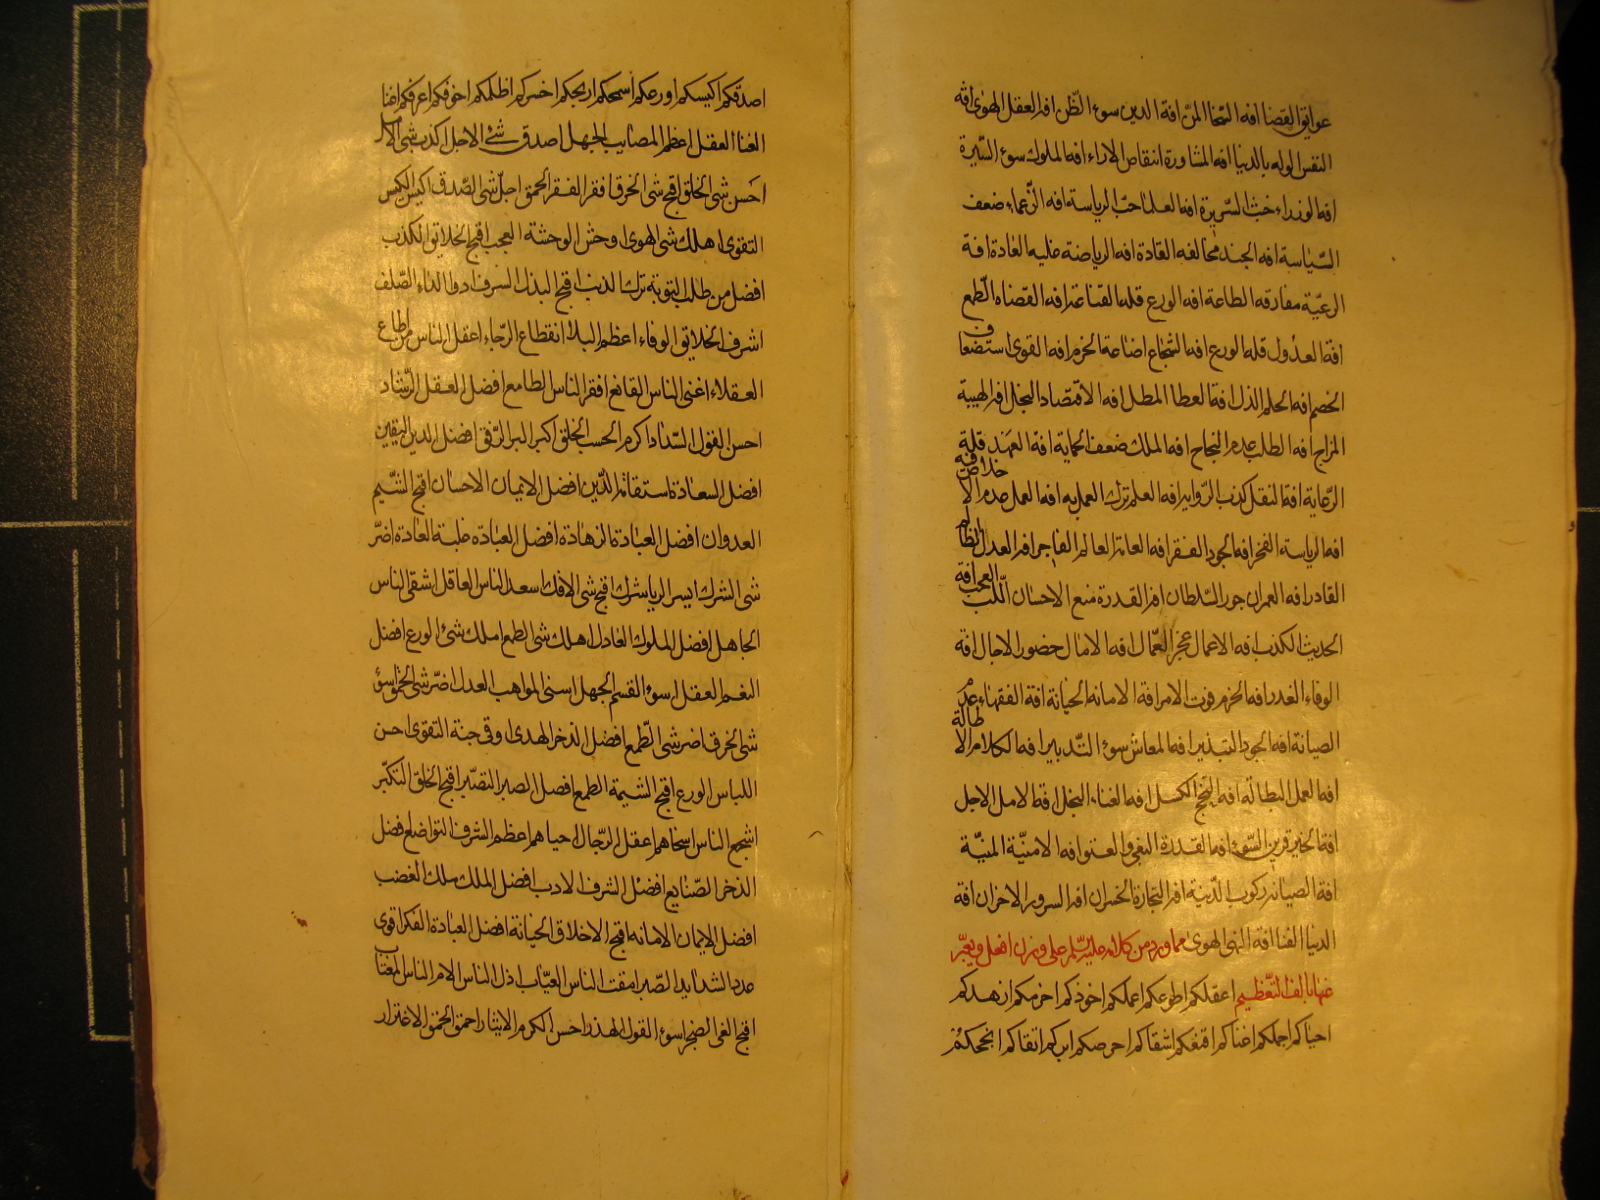 عوايق القضا افه السخا المن افة الدين سوء الظن افه العقل الهوى افه
النفس الوله بالدنيا افه المشاورة انتقاض الاراء افه الملوك سوء السيرة
افه الوزراء خبث السريرة افه العلما حب الرياسة افه الزعماء ضعف
السياسة افه الجند مخالفه القادة افه الرياضة غلبه العادة افة
الرعية مفارقه الطاعة افه الورع قلة القناعة افه القضاه الطمع
افة العدول قله الورع افه الشجاع اضاعة الحزم افه القوى استضعاف
الخصم افه الحلم الذل افة العطا المطل افه الاقتصاد البخل افه الهيبة
المزاح افه الطلب عدم النجاح افه الملك ضعف الحماية افة العهد قلة
الرعاية افة النقل كذب الرواية افه العلم ترك العمل به افه العمل عدم الاخلاص فيه
افه الرياسة الفخر افه الجود الفقر افه العامة العالم الفاجر افه العدل الظالم
القادر افه العمران جور السلطان افه القدرة منع الاحسان اللب العجب افة
الحديث الكذب افه الاعمال عجز العمال افه الامال حضور الاجال افة
الوفاء الغدر افه الحزم فوت الامر افة الامانه الخيانة افة الفقهاء عدم
الصيانة افه الجود التبذير افه المعاش سوء التدبير افه الكلام الاطالة
افه العمل البطالة افه النجح الكسل افه الغناء البخل افة الامل الاجل
افة الخير قرين السوء افه القدرة البغي والعتو افه الامنية المنية
افة الصيانه ركوب الدنية افه التجارة الخسران افه السرور الاحزان افة
الدنيا الفنا افة النهى الهوى مما ورد من كلامه عليه السلم على وزن افعل ويعبر
عنها بالف التعظيم اعقلكم اطوعكم اعملكم اخوذكم احزمكم ازهدكم
احياكم اجملكم اغناكم اقنعكم اشقاكم احرصكم ابركم اتقاكم انجحكم
اصدقكم اكيسكم اورعكم اسمحكم اربحكم اخسركم اظلمكم اخوفكم اعرفكم اغنا
الغنا العقل اعظم المصايب الجهل اصدق شئ الاجل اكذب شى الامل
احسن شى الخلق اقبح شى الخرق افقر الفقر الحمق اجل شى الصدق اكيس الكيس
التقوى اهلك شى الهوى اوحش الوحشة العجب اقبح الخلايق الكذب
افضل من طلب التوبة ترك الذنب اقبح البذل السرف ادوا الداء الصلف
اشرف الخلايق الوفاء اعظم البلا انقطاع الرجاء اعقل الناس من اطاع
العقلاء اغنى الناس القانع افقر الناس الطامع افضل العقل الرشاد
احسن القول السداد اكرم الحسب الخلق اكبر البر الرفق افضل الدين اليقين
افضل السعادة استقامة الدين افضل الايمان الاحسان اقبح الشيم
العدوان افضل العبادة الزهادة افضل العبادة غلبة العادة اضر
شى الشرك ايسر الريا شرك اقبح شى الافك اسعد الناس العاقل اشقى الناس
الجاهل افضل الملوك العادل اهلك شى الطمع املك شئ الورع افضل
النعم العقل اسوء القسم الجهل اسنى المواهب العدل اضر شى الحمق اسوء
شى الخرق اضر شى الطمع افضل الذخر الهدى اوقى جنة التقوى احسن
اللباس الورع اقبح الشيمة الطمع افضل الصبر التصبر اقبح الخلق التكبر
اشجع الناس اسخاهم اعقل الرجال احياهم اعظم الشرف التواضع افضل
الذخر الصنايع افضل الشرف الادب افضل الملك ملك الغضب
افضل الايمان الامانه اقبح الاخلاق الخيانة افضل العبادة الفكر اقوى
عدد الشدايد الصبر امقت الناس العياب اذل الناس الام الناس المغتاب
اقبح الغى الضجر اسوء القول الهذر احسن الكرم الايثار احمق الحمق الاغترار